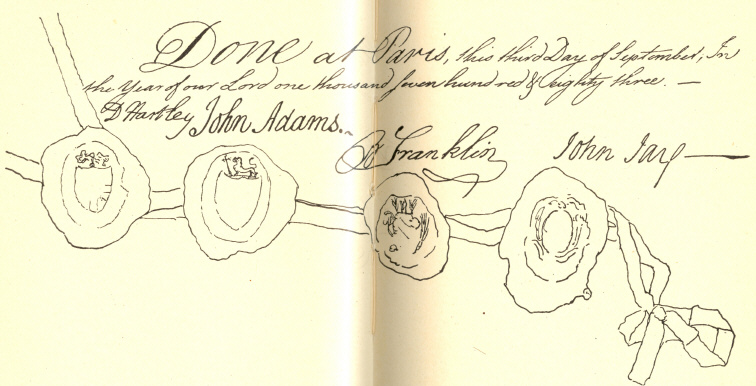 Done at Paris, this third Day of September, In
the Year of our Lord one thousand seven hundred & eighty three. —
D Hartley John Adams.
B Franklin John Jay —